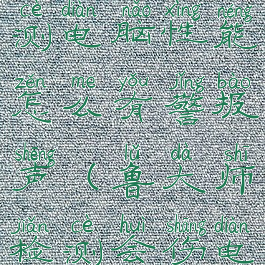 cè diàn nǎo xìng néng
测电脑性能
zěn me yǒu jǐng bào
怎么有警报
shēng lǔ dà shī
声(鲁大师
jiǎn cè huì shāng diàn
检测会伤电